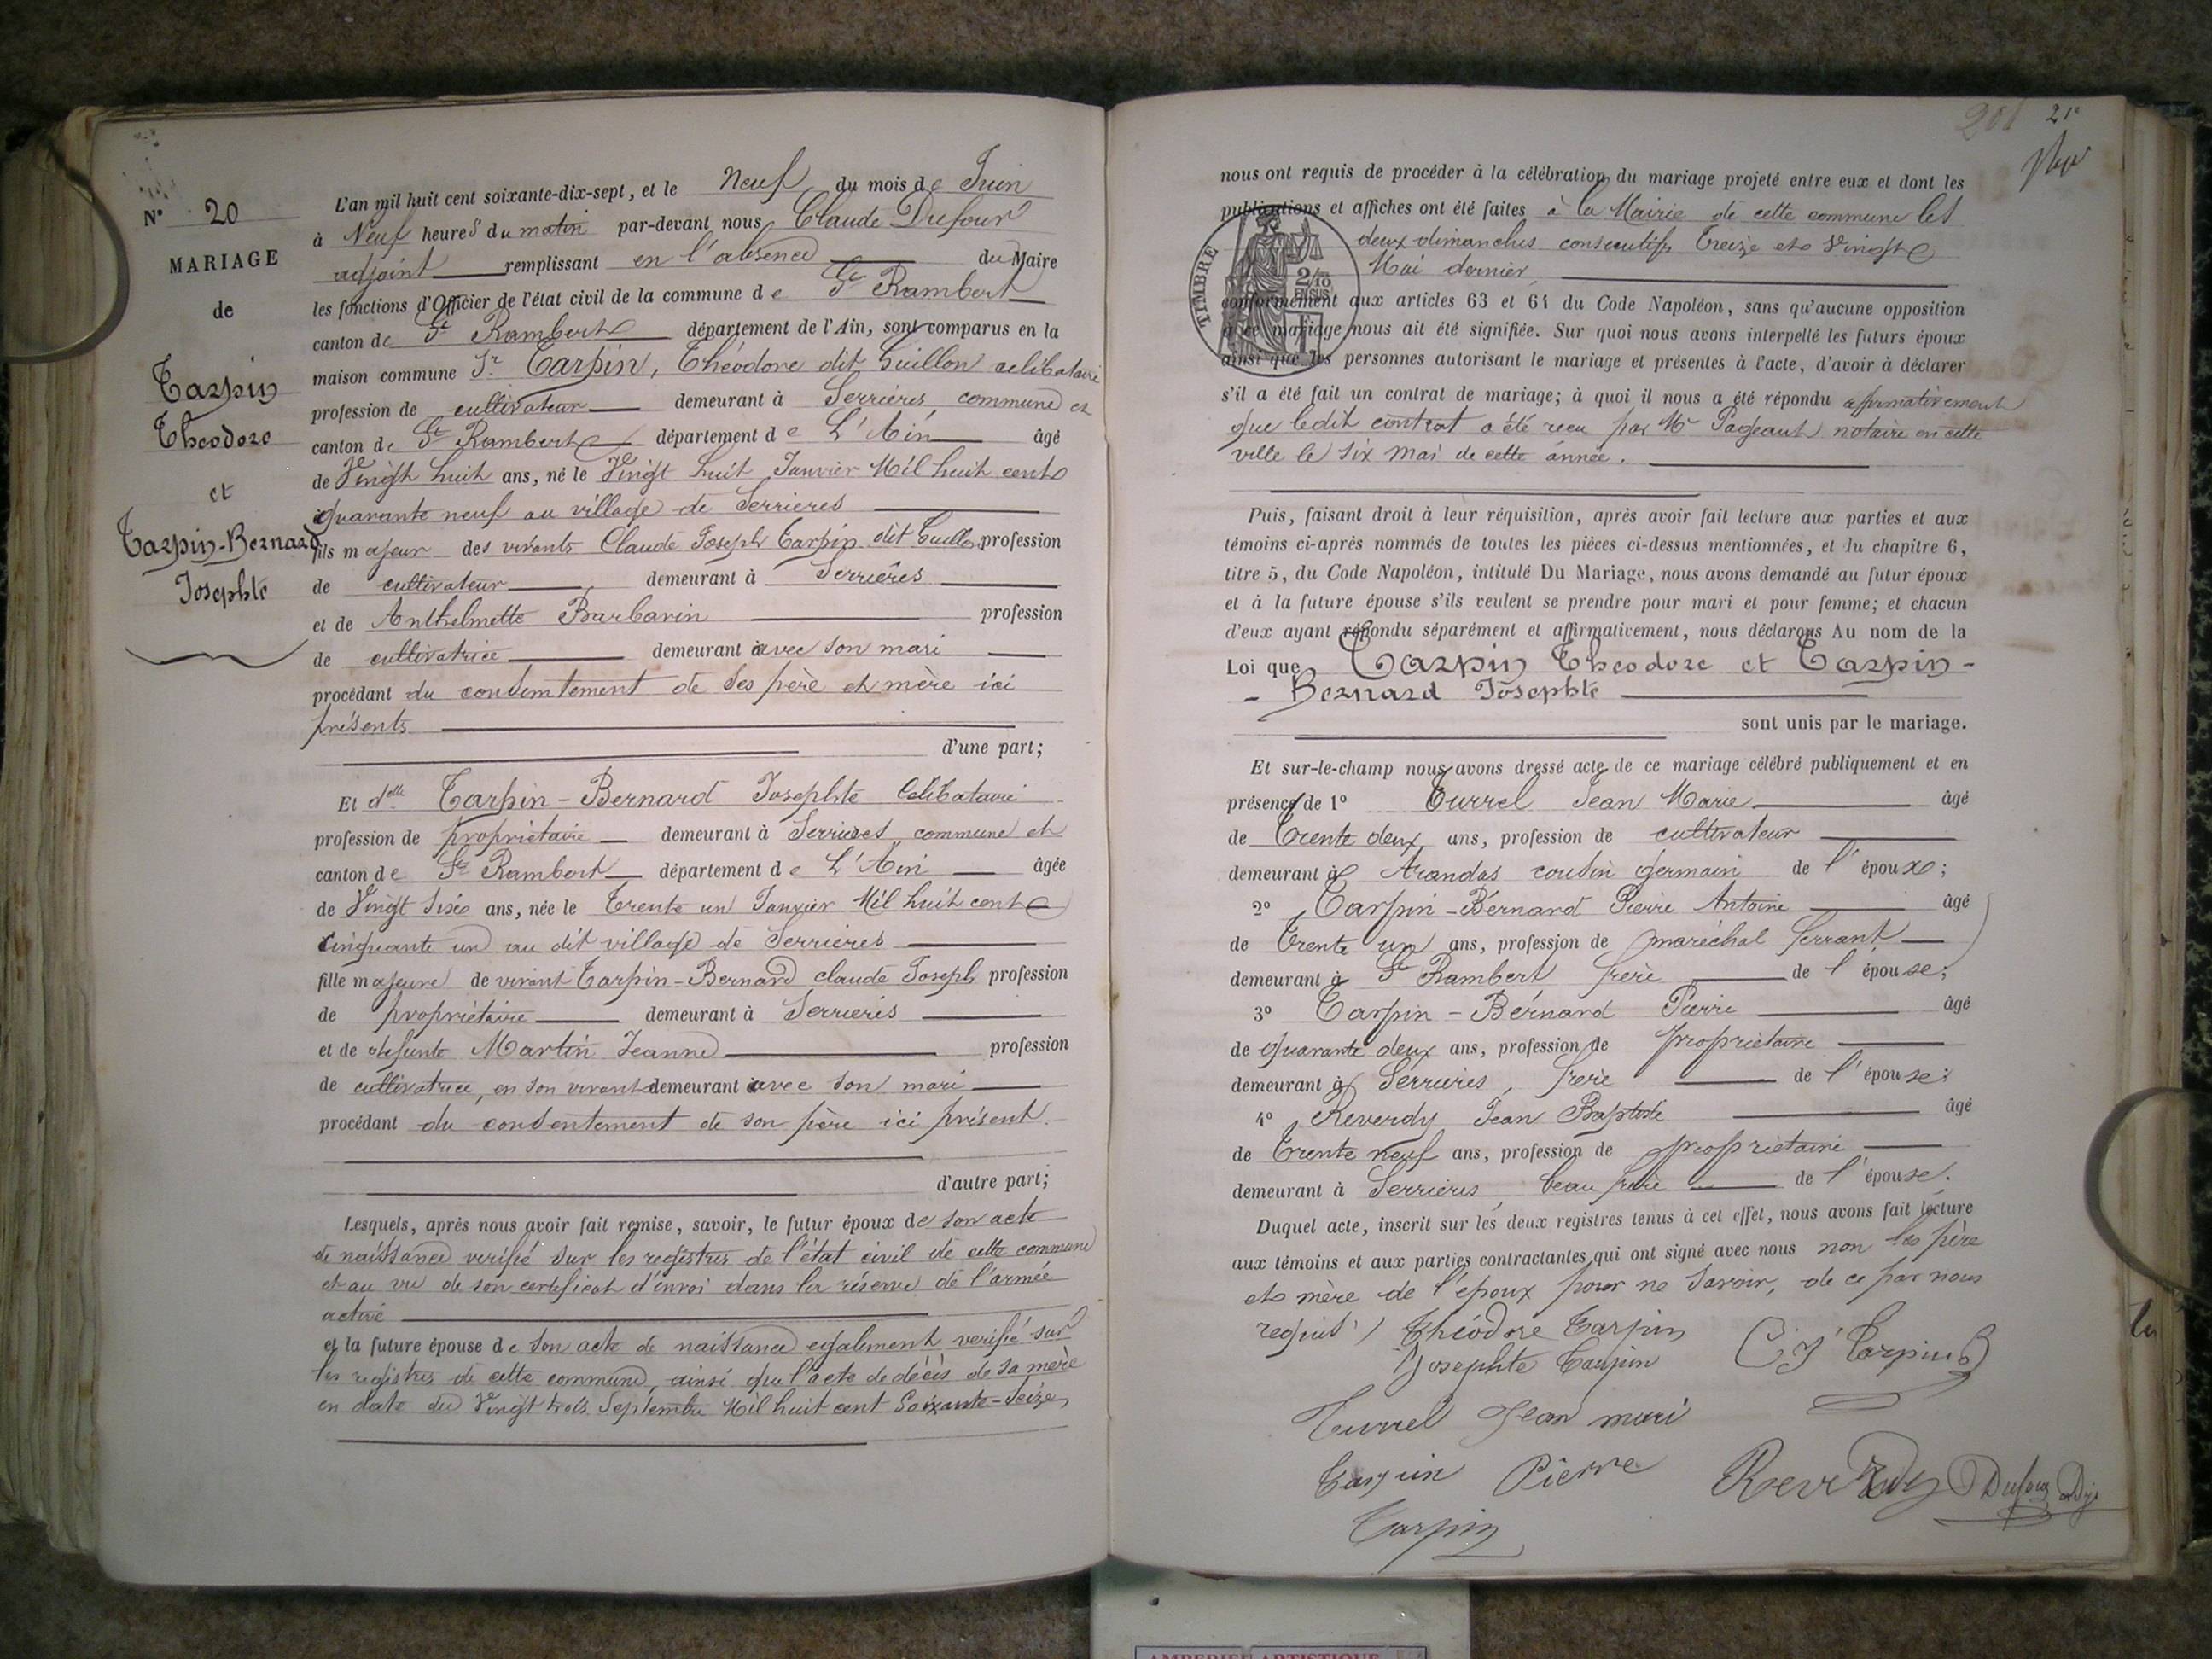 N° 20
MARIAGE
de
Tarpin
Theodore
et
Tarpin-Bernard
Josephte
L'an mil huit cent soixante-dix-sept, et le Neuf du mois de Juin
à Neuf heures du matin par-devant nous Claude Dufour
adjoint remplissant en l'absence du Maire
les fonctions d'Officier de l'état civil de la commune de St Rambert
canton de St Rambert département de l'Ain, sont comparus en la
maison commune Sr Tarpin, Théodore dit Guillon célibataire
profession de cultivateur demeurant à Serrières, commune et
canton de St Rambert département de L'Ain âgé
de Vingt huit ans, né le Vingt huit Janvier Mil huit cent
quarante neuf au village de Serrières
fils majeur des vivants Claude Joseph Tarpin dit profession
de cultivateur demeurant à Serrières
et de Anthelmette Barbarin profession
de cultivatrice demeurant avec son mari
procédant du consentement de ses père et mère ici
présents
d'une part;
Et delle Tarpin-Bernard Josephte Célibataire
profession de propriétaire demeurant à Serrières commune et
canton de St Rambert département de L'Ain âgée
de Vingt Six ans, née le Trente un Janvier Mil huit cent
cinquante un au dit village de Serrières
fille majeure de vivant Tarpin-Bernard claude Joseph profession
de propriétaire demeurant à Serrières
et de défunte Martin Jeanne profession
de cultivatrice, en son vivant demeurant avec son mari
procédant du consentement de son père ici présent.
d'autre part;
Lesquels, après nous avoir fait remise, savoir, le futur époux de son acte
de naissance verifié sur les registres de l'état civil de cette commune
et au vu de son certificat d'envoi dans la réserve de l'armée
active
et la future épouse de son acte de naissance egalement verifié sur
les registres de cette commune, ainsi que l'acte de décès de sa mère
en date du Vingt trois Septembre Mil huit cent Soixante-Seize
201 21e
nous ont requis de procéder à la célébration du mariage projeté entre eux et dont les
publications et affiches ont été faites à la Mairie de cette commune les
deux dimanches consecutifs Treize et Vingt
Mai dernier
TIMBRE
2/10
EN SUS
conformément aux articles 63 et 64 du Code Napoléon, sans qu'aucune opposition
à ce mariage nous ait été signifiée. Sur quoi nous avons interpellé les futurs époux
ainsi que les personnes autorisant le mariage et présentes à l'acte, d'avoir à déclarer
s'il a été fait un contrat de mariage; à quoi il nous a été répondu affirmativement
que ledit contrat a été reçu par Me Pageaut notaire en cette
ville le six Mai de cette année.
Puis, faisant droit à leur réquisition, après avoir fait lecture aux parties et aux
témoins ci-après nommés de toutes les pièces ci-dessus mentionnées, et du chapitre 6,
titre 5, du Code Napoléon, intitulé Du Mariage, nous avons demandé au futur époux
et à la future épouse s'ils veulent se prendre pour mari et pour femme; et chacun
d'eux ayant répondu séparément et affirmativement, nous déclarons Au nom de la
Loi que Tarpin Theodore et Tarpin-
-Bernard Josephte
sont unis par le mariage.
Et sur-le-champ nous avons dressé acte de ce mariage célébré publiquement et en
présence de 1° Turrel Jean Marie âgé
de Trente deux ans, profession de cultivateur
demeurant à Arandas cousin germain de l'époux;
2° Tarpin-Bernard Pierre Antoine âgé
de Trente un ans, profession de maréchal ferrant
demeurant à St Rambert frère de l'épouse;
3° Tarpin-Bernard Pierre âgé
de quarante deux ans, profession de propriétaire
demeurant à Serrières, frère de l'épouse;
4° Reverdy Jean Baptiste âgé
de Trente neuf ans, profession de propriétaire
demeurant à Serrières beau frère de l'épouse.
Duquel acte, inscrit sur les deux registres tenus à cet effet, nous avons fait lecture
aux témoins et aux parties contractantes qui ont signé avec nous non les père
et mère de l'époux pour ne savoir, de ce par nous
requis
Théodore Tarpin
Josephte Tarpin
C J Tarpin B
Turrel Jean mari
Tarpin Pierre
Reverdy
Dufour Adj
Tarpin
AMBERIEU ARTISTIQUE